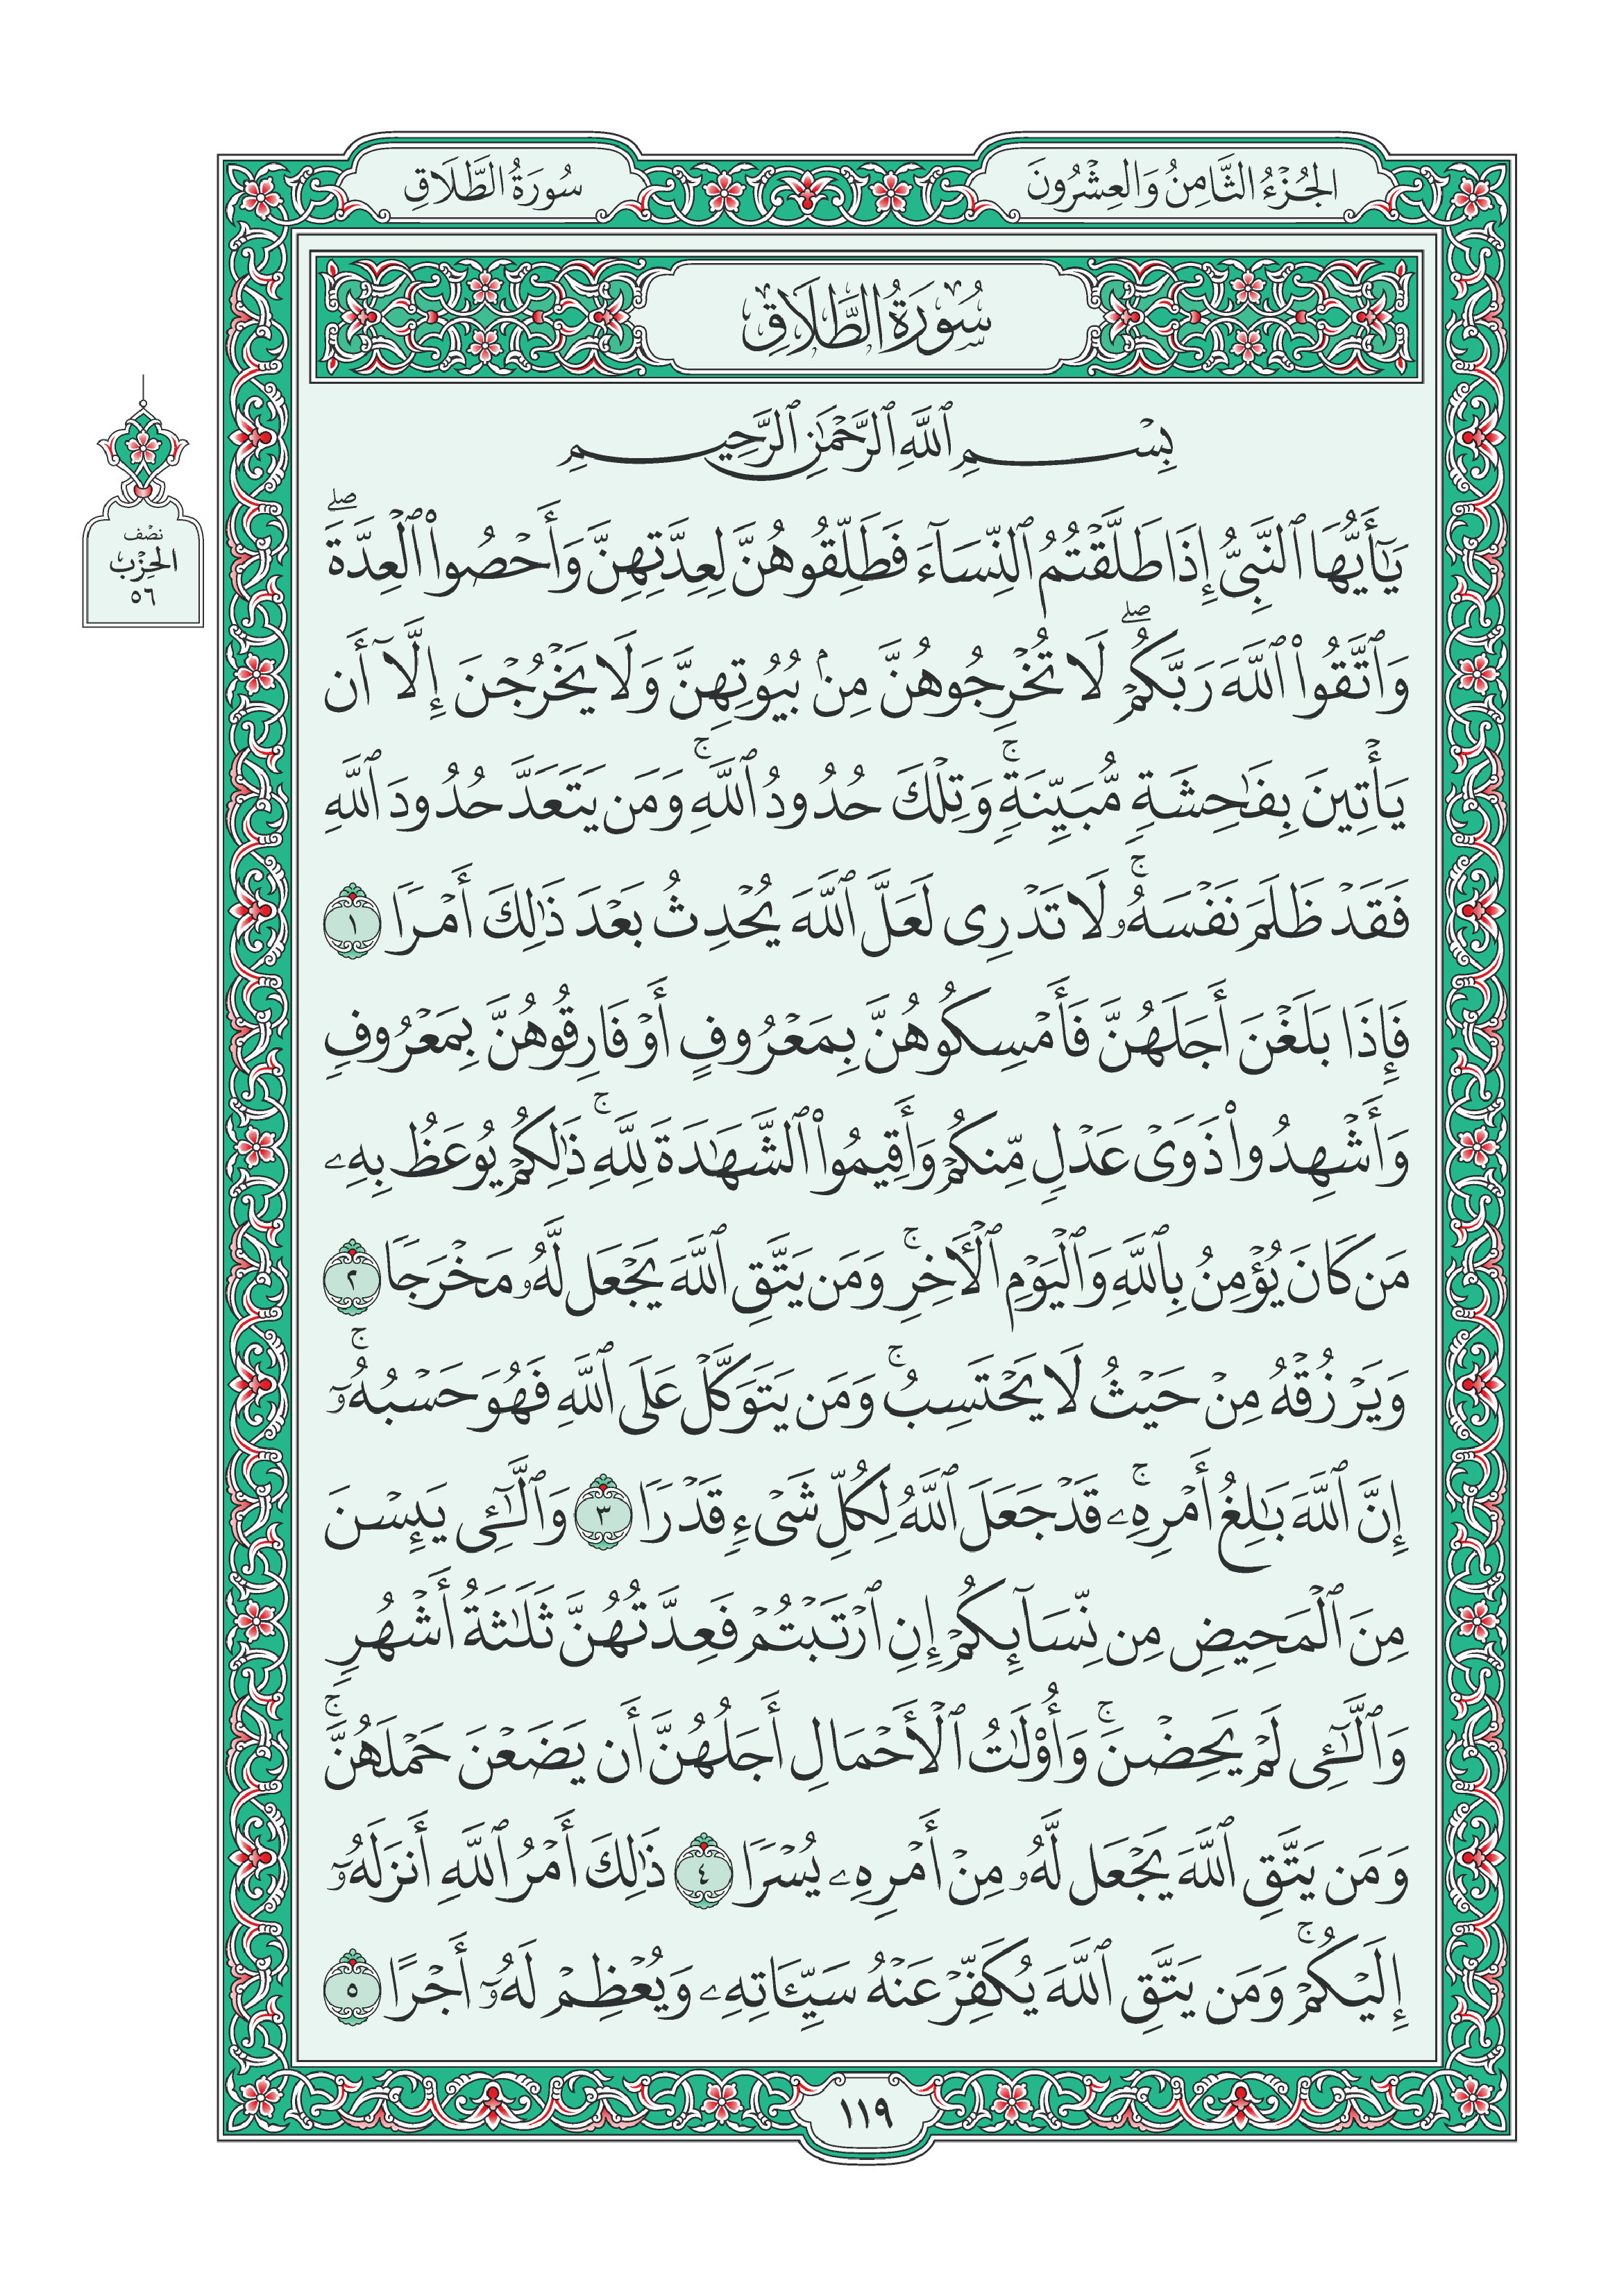 الجُزْءُ الثَّامِنُ وَالعِشْرُونَ
سُورَةُ الطَّلَاقِ
سُورَةُ الطَّلَاقِ
بِسْمِ ٱللَّهِ ٱلرَّحْمَٰنِ ٱلرَّحِيمِ
يَٰٓأَيُّهَا ٱلنَّبِىُّ إِذَا طَلَّقْتُمُ ٱلنِّسَآءَ فَطَلِّقُوهُنَّ لِعِدَّتِهِنَّ وَأَحْصُوا۟ ٱلْعِدَّةَ ۖ
وَٱتَّقُوا۟ ٱللَّهَ رَبَّكُمْ ۖ لَا تُخْرِجُوهُنَّ مِنۢ بُيُوتِهِنَّ وَلَا يَخْرُجْنَ إِلَّآ أَن
يَأْتِينَ بِفَٰحِشَةٍ مُّبَيِّنَةٍ ۚ وَتِلْكَ حُدُودُ ٱللَّهِ ۚ وَمَن يَتَعَدَّ حُدُودَ ٱللَّهِ
فَقَدْ ظَلَمَ نَفْسَهُۥ ۚ لَا تَدْرِى لَعَلَّ ٱللَّهَ يُحْدِثُ بَعْدَ ذَٰلِكَ أَمْرًا ١
فَإِذَا بَلَغْنَ أَجَلَهُنَّ فَأَمْسِكُوهُنَّ بِمَعْرُوفٍ أَوْ فَارِقُوهُنَّ بِمَعْرُوفٍ
وَأَشْهِدُوا۟ ذَوَىْ عَدْلٍ مِّنكُمْ وَأَقِيمُوا۟ ٱلشَّهَٰدَةَ لِلَّهِ ۚ ذَٰلِكُمْ يُوعَظُ بِهِۦ
مَن كَانَ يُؤْمِنُ بِٱللَّهِ وَٱلْيَوْمِ ٱلْءَاخِرِ ۚ وَمَن يَتَّقِ ٱللَّهَ يَجْعَل لَّهُۥ مَخْرَجًا ٢
وَيَرْزُقْهُ مِنْ حَيْثُ لَا يَحْتَسِبُ ۚ وَمَن يَتَوَكَّلْ عَلَى ٱللَّهِ فَهُوَ حَسْبُهُۥٓ ۚ
إِنَّ ٱللَّهَ بَٰلِغُ أَمْرِهِۦ ۚ قَدْ جَعَلَ ٱللَّهُ لِكُلِّ شَىْءٍ قَدْرًا ٣ وَٱلَّٰٓـِٔى يَئِسْنَ
مِنَ ٱلْمَحِيضِ مِن نِّسَآئِكُمْ إِنِ ٱرْتَبْتُمْ فَعِدَّتُهُنَّ ثَلَٰثَةُ أَشْهُرٍ
وَٱلَّٰٓـِٔى لَمْ يَحِضْنَ ۚ وَأُو۟لَٰتُ ٱلْأَحْمَالِ أَجَلُهُنَّ أَن يَضَعْنَ حَمْلَهُنَّ ۚ
وَمَن يَتَّقِ ٱللَّهَ يَجْعَل لَّهُۥ مِنْ أَمْرِهِۦ يُسْرًا ٤ ذَٰلِكَ أَمْرُ ٱللَّهِ أَنزَلَهُۥٓ
إِلَيْكُمْ ۚ وَمَن يَتَّقِ ٱللَّهَ يُكَفِّرْ عَنْهُ سَيِّـَٔاتِهِۦ وَيُعْظِمْ لَهُۥٓ أَجْرًا ٥
نصْف
الحِزْب
٥٦
١١٩